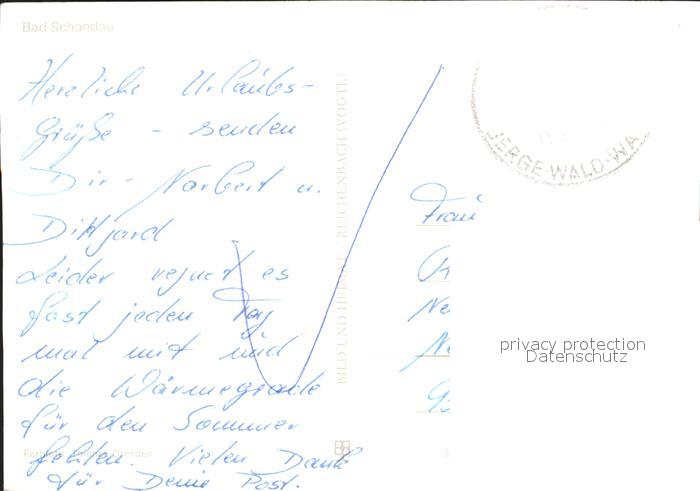 Bad Schandau
Herzliche Urlaubs-
Grüße - senden
Dir - Norbert u.
Leider regnet es
fast jeden Tag
mal mit und
die Wärmegrade
für den Sommer
fehlen. Vielen Dank
für Deine Post.
BILD UND HEIMAT REICHENBACH (VOGTL)
Frau
privacy protection
Datenschutz